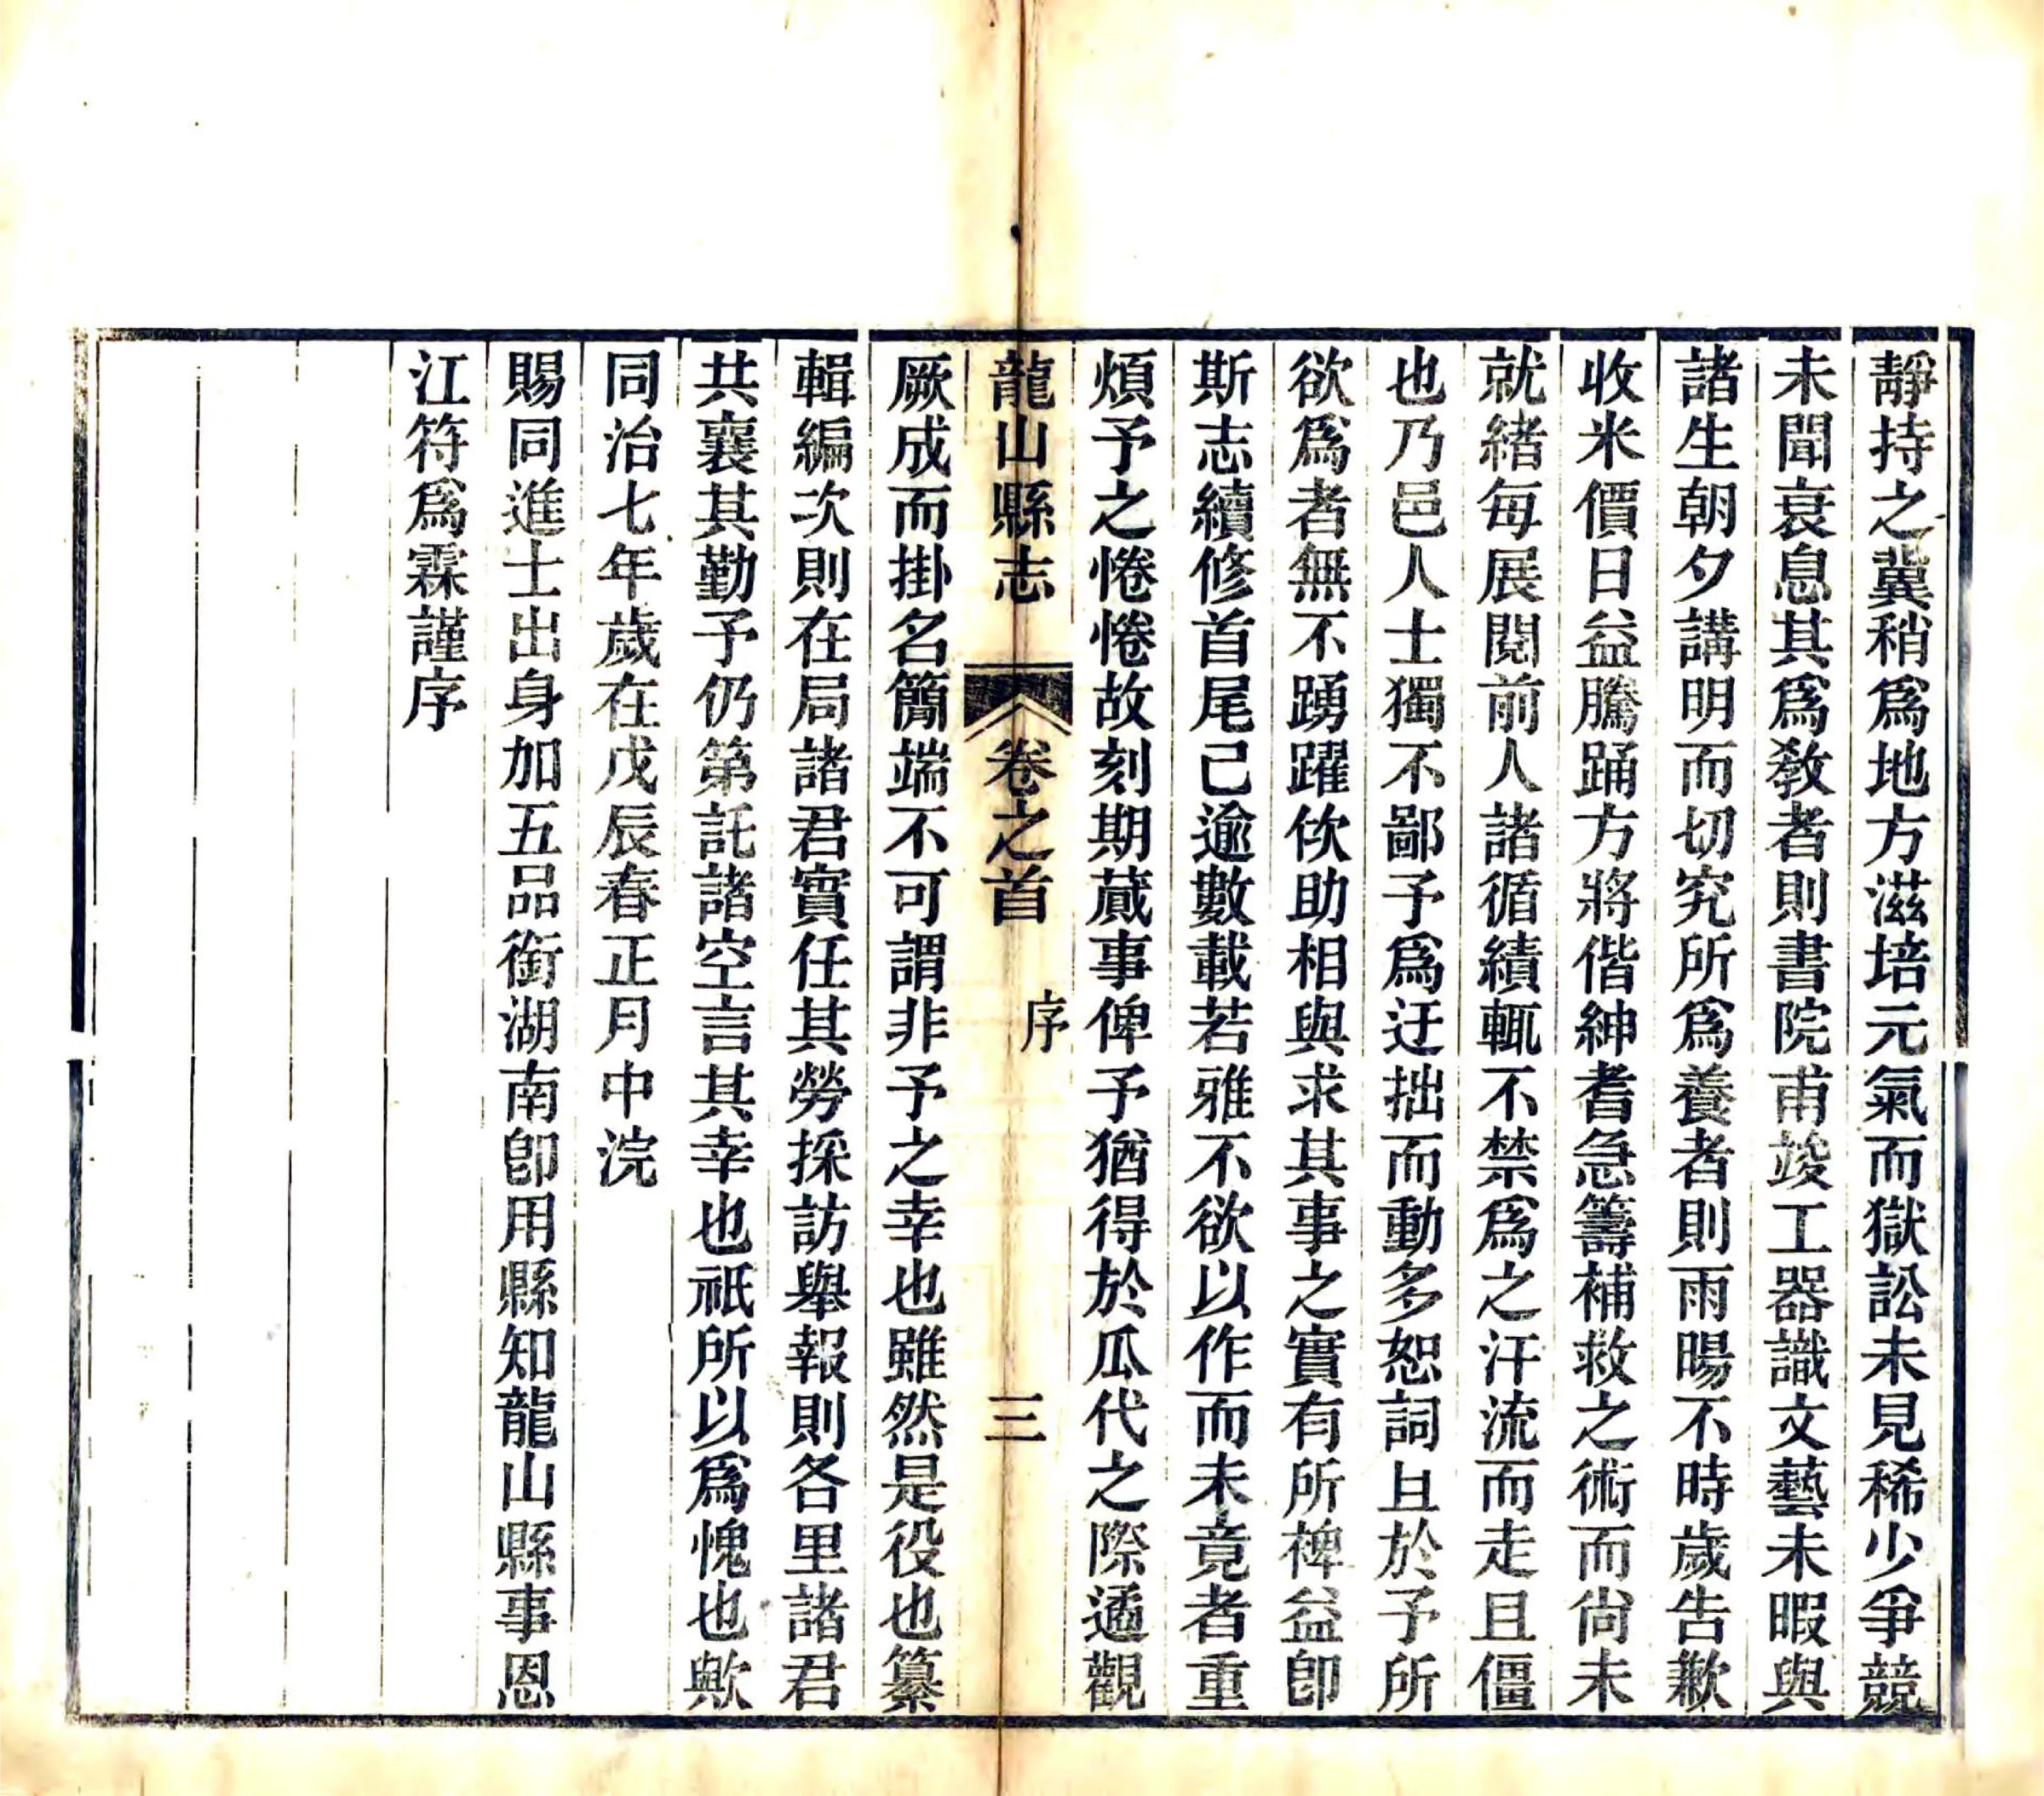 靜持之冀稍爲地方滋培元氣而獄訟未見稀少爭競
未聞衰息其爲敎者則書院甫竣工器識文藝未暇與
諸生朝夕講明而切究所爲養者則雨暘不時歲告歉
收米價日益騰踊方將偕紳耆急籌補救之術而尙未
就緒每展閱前人諸循績輒不禁爲之汗流而走且僵
也乃邑人士獨不鄙予爲迂拙而動多恕詞且於予所
欲爲者無不踴躍佽助相與求其事之實有所裨益卽
斯志續修首尾已逾數載若雅不欲以作而未竟者重
煩予之惓惓故刻期蕆事俾予猶得於瓜代之際遹觀
龍山縣志 卷之首 序 三
厥成而掛名簡端不可謂非予之幸也雖然是役也纂
輯編次則在局諸君實任其勞採訪舉報則各里諸君
共襄其勤予仍第託諸空言其幸也祇所以爲愧也歟
同治七年歲在戊辰春正月中浣
賜同進士出身加五品銜湖南卽用縣知龍山縣事恩
江符爲霖謹序